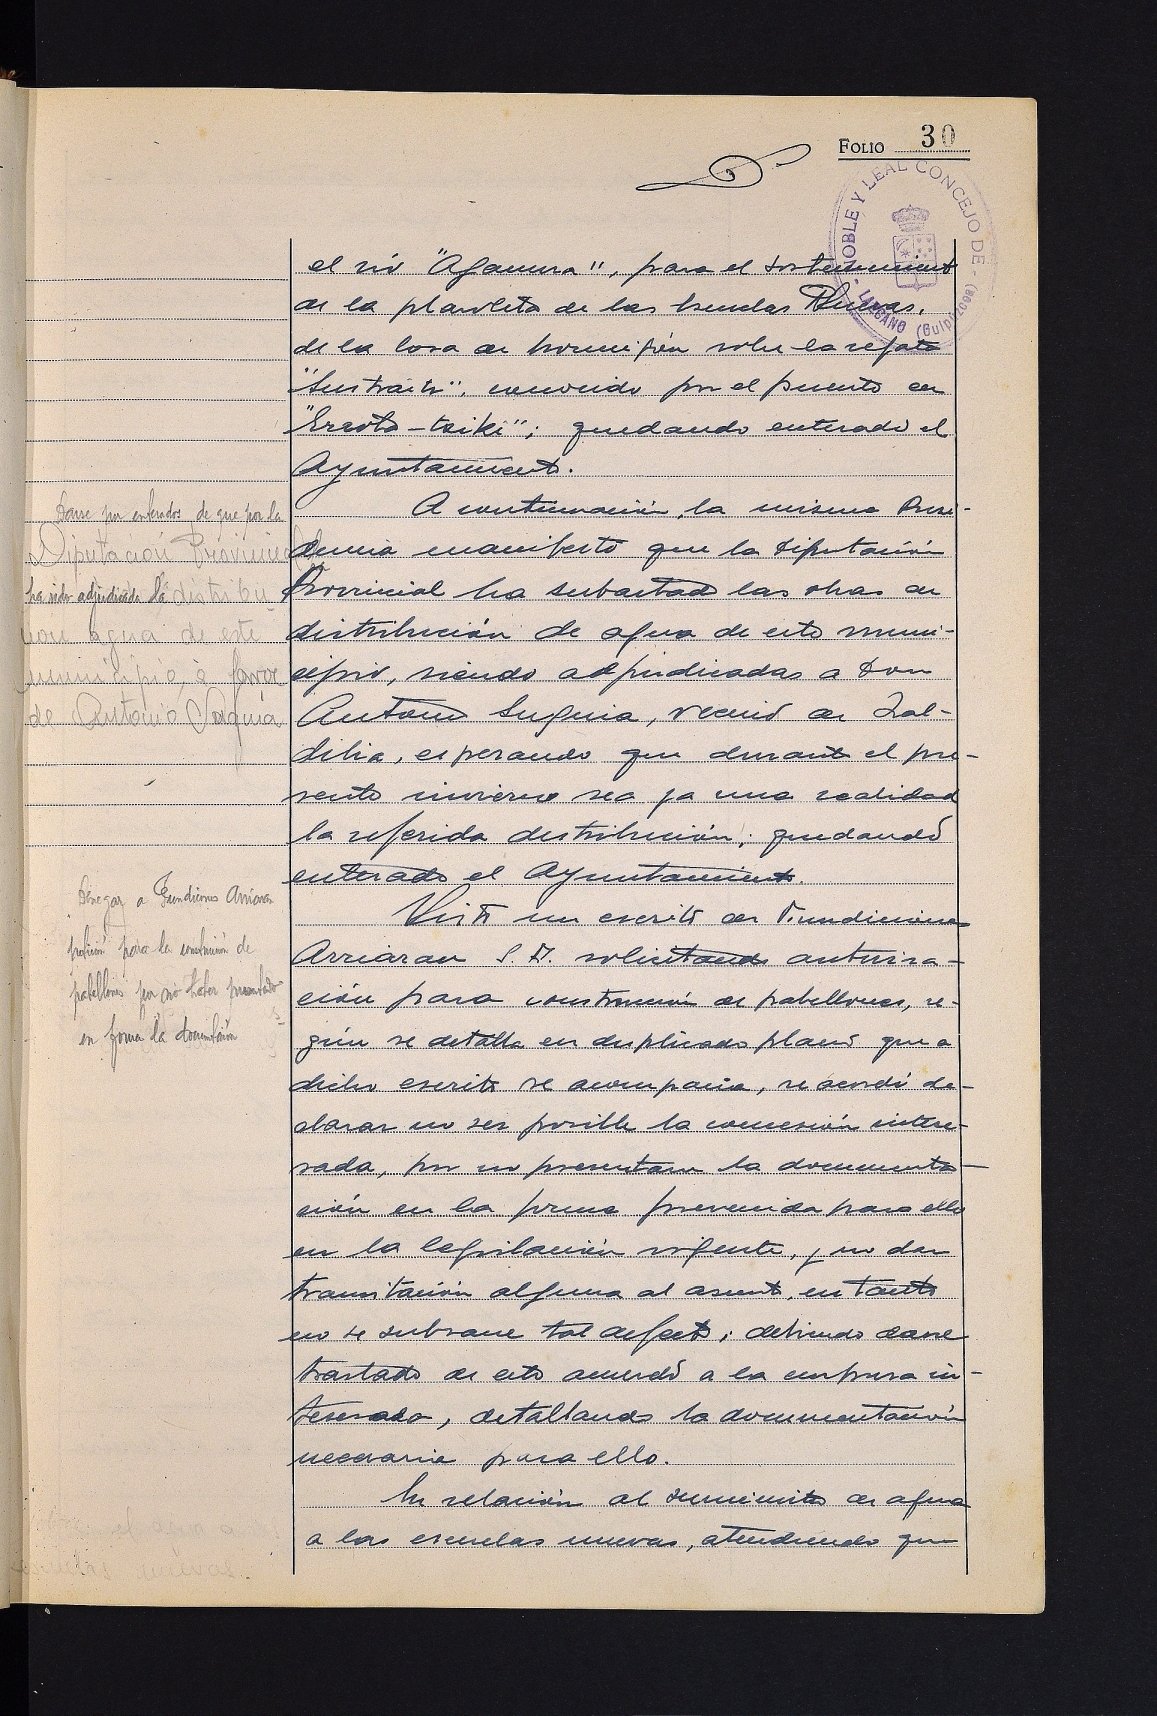 FOLIO 30
NOBLE Y LEAL CONCEJO DE - LAZCANO (Guipúzcoa)
el río "Agaunza", para el sostenimiento
de la plazoleta de las Escuelas Nuevas,
de la losa de hormigón sobre la regata
conocido por el puente de
"Errota-txiki"; quedando enterado el
Ayuntamiento.
A continuación, la misma Presi-
dencia manifestó que la Diputación
Provincial ha subastado las obras de
distribución de agua de este muni-
cipio, siendo adjudicadas a Don
Antonio Suquia, vecino de Zal-
dibia, esperando que durante el pre-
sente invierno sea ya una realidad
la referida distribución; quedando
enterado el Ayuntamiento.
Darse por enterados de que por la
Diputación Provincial
ha sido adjudicada la distribu
ción agua de este
municipio, a favor
de Antonio Suquia
Visto un escrito de Fundiciones
Arriaran S.A. solicitando autoriza-
ción para construcción de pabellones, se-
gún se detalla en duplicado plano que a
dicho escrito se acompaña, se acordó de-
clarar no ser posible la concesión intere-
sada, por no presentarse la documenta-
ción en la forma prevenida para ello
en la legislación vigente, y no dar
tramitación alguna al asunto, en tanto
no se subsane tal defecto; debiendo darse
traslado de este acuerdo a la empresa in-
teresada, detallando la documentación
necesaria para ello.
Denegar a Fundiciones Arriaran
petición para la construcción de
pabellones por no haber presentado
en forma la documentación
En relación al suministro de agua
a las escuelas nuevas, atendiendo que